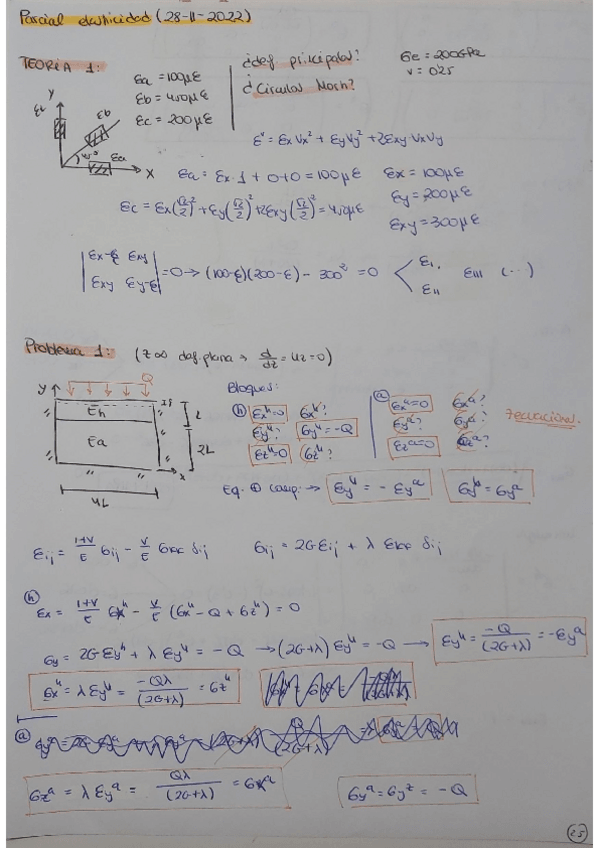 Parcial elasticidad (28-11-2022)
TEORÍA 1:
εa = 100με
εb = 450με
εc = 200με
¿def. principales?
¿Círculos Mohr?
Ge = 200GPa
v = 0'25
y
εc
εb
45°
εa
x
ε^v = εx Vx² + εy Vy² + 2εxy·Vx Vy
εa = εx·1 + 0 + 0 = 100με
εx = 100με
εc = εx(√2/2)² + εy(√2/2)² + 2εxy(√2/2)² = 450με
εy = 200με
εxy = 300με
|εx-ε εxy|
|εxy εy-ε| = 0 → (100-ε)(200-ε) - 300² = 0 < εI, εII εIII (...)
Problema 1: (z ∞ def. plana → d/dz = uz = 0)
Q
y
Eh
L
Ea
2L
x
4L
Bloques:
(h) εx^h = 0 6x^h?
εy^h? 6y^h = -Q
εz^h = 0 6z^h?
(a) εx^a = 0 6x^a?
εy^a? 6y^a?
εz^a = 0 6z^a?
7 ecuaciones.
Eq. ⊕ comp: → εy^h = - εy^a 6y^h = 6y^a
εij = (1+v)/E 6ij - v/E 6kk δij 6ij = 2G εij + λ εkk δij
(h)
εx = (1+v)/E 6x^h - v/E (6x^h - Q + 6z^h) = 0
6y = 2G εy^h + λ εy^h = -Q → (2G+λ) εy^h = -Q → εy^h = -Q/(2G+λ) = -εy^a
6x^h = λ εy^h = -Qλ/(2G+λ) = 6z^h
(a)
6z^a = λ εy^a = Qλ/(2G+λ) = 6x^a 6y^a = 6y^z = -Q
25